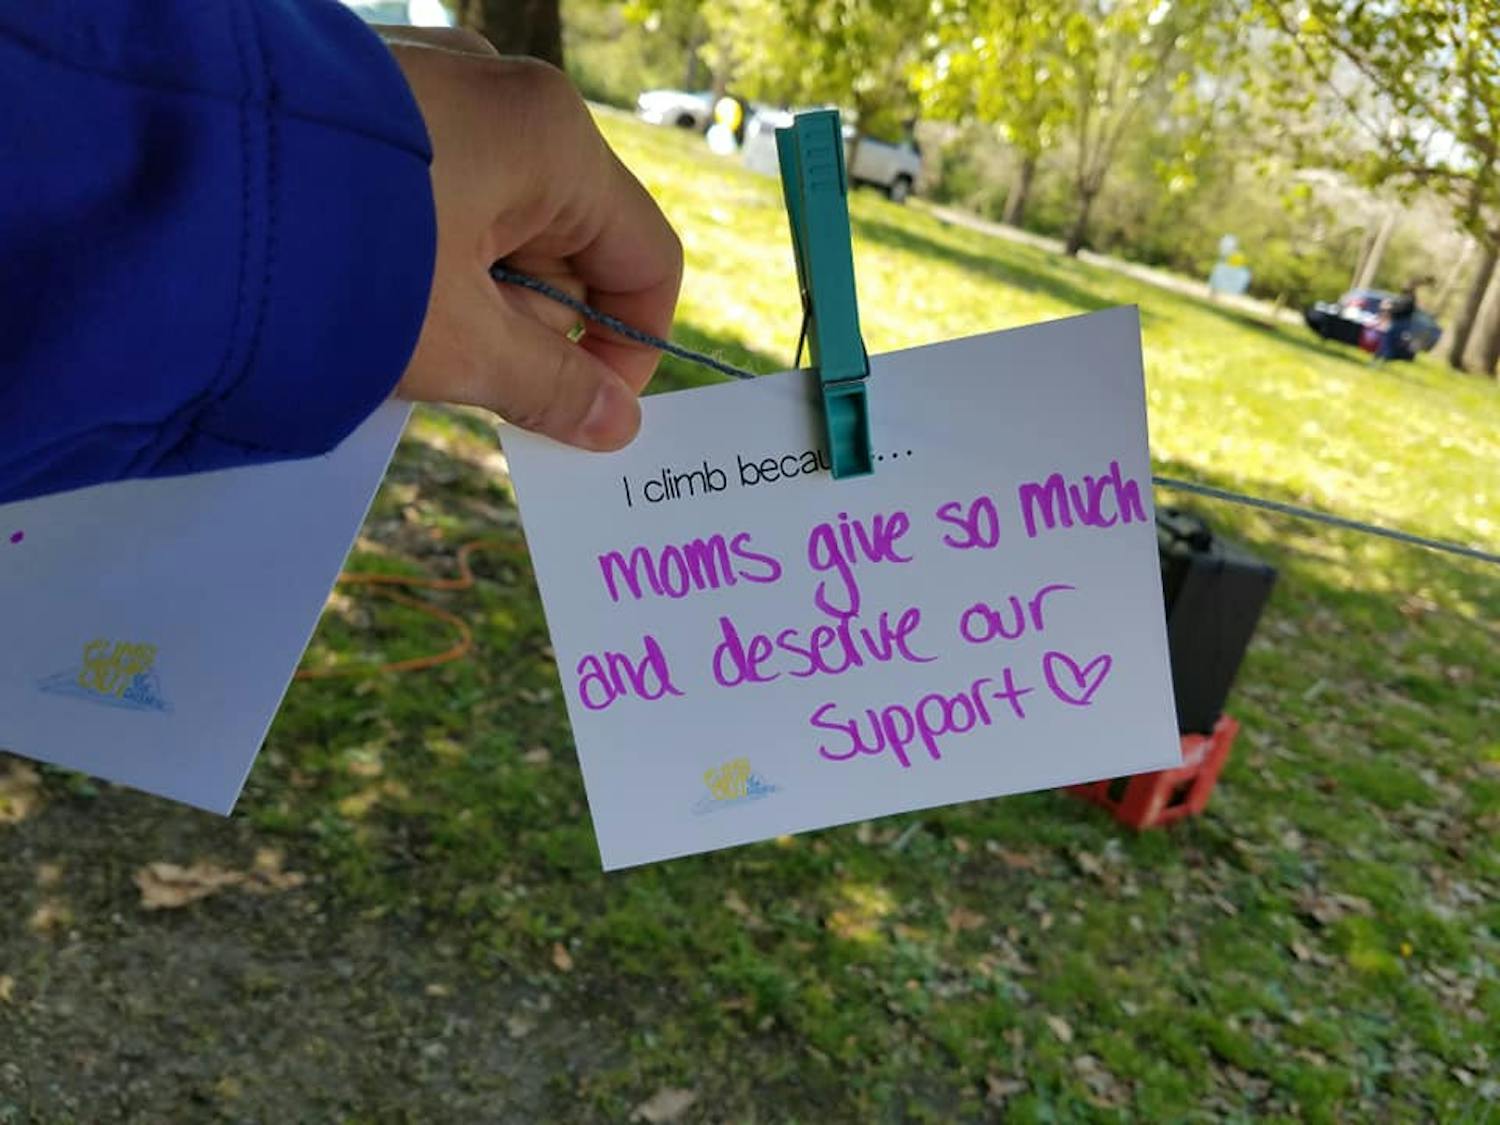 I climb becau...
moms give so much
and deserve our
support
CLIMB
OUT